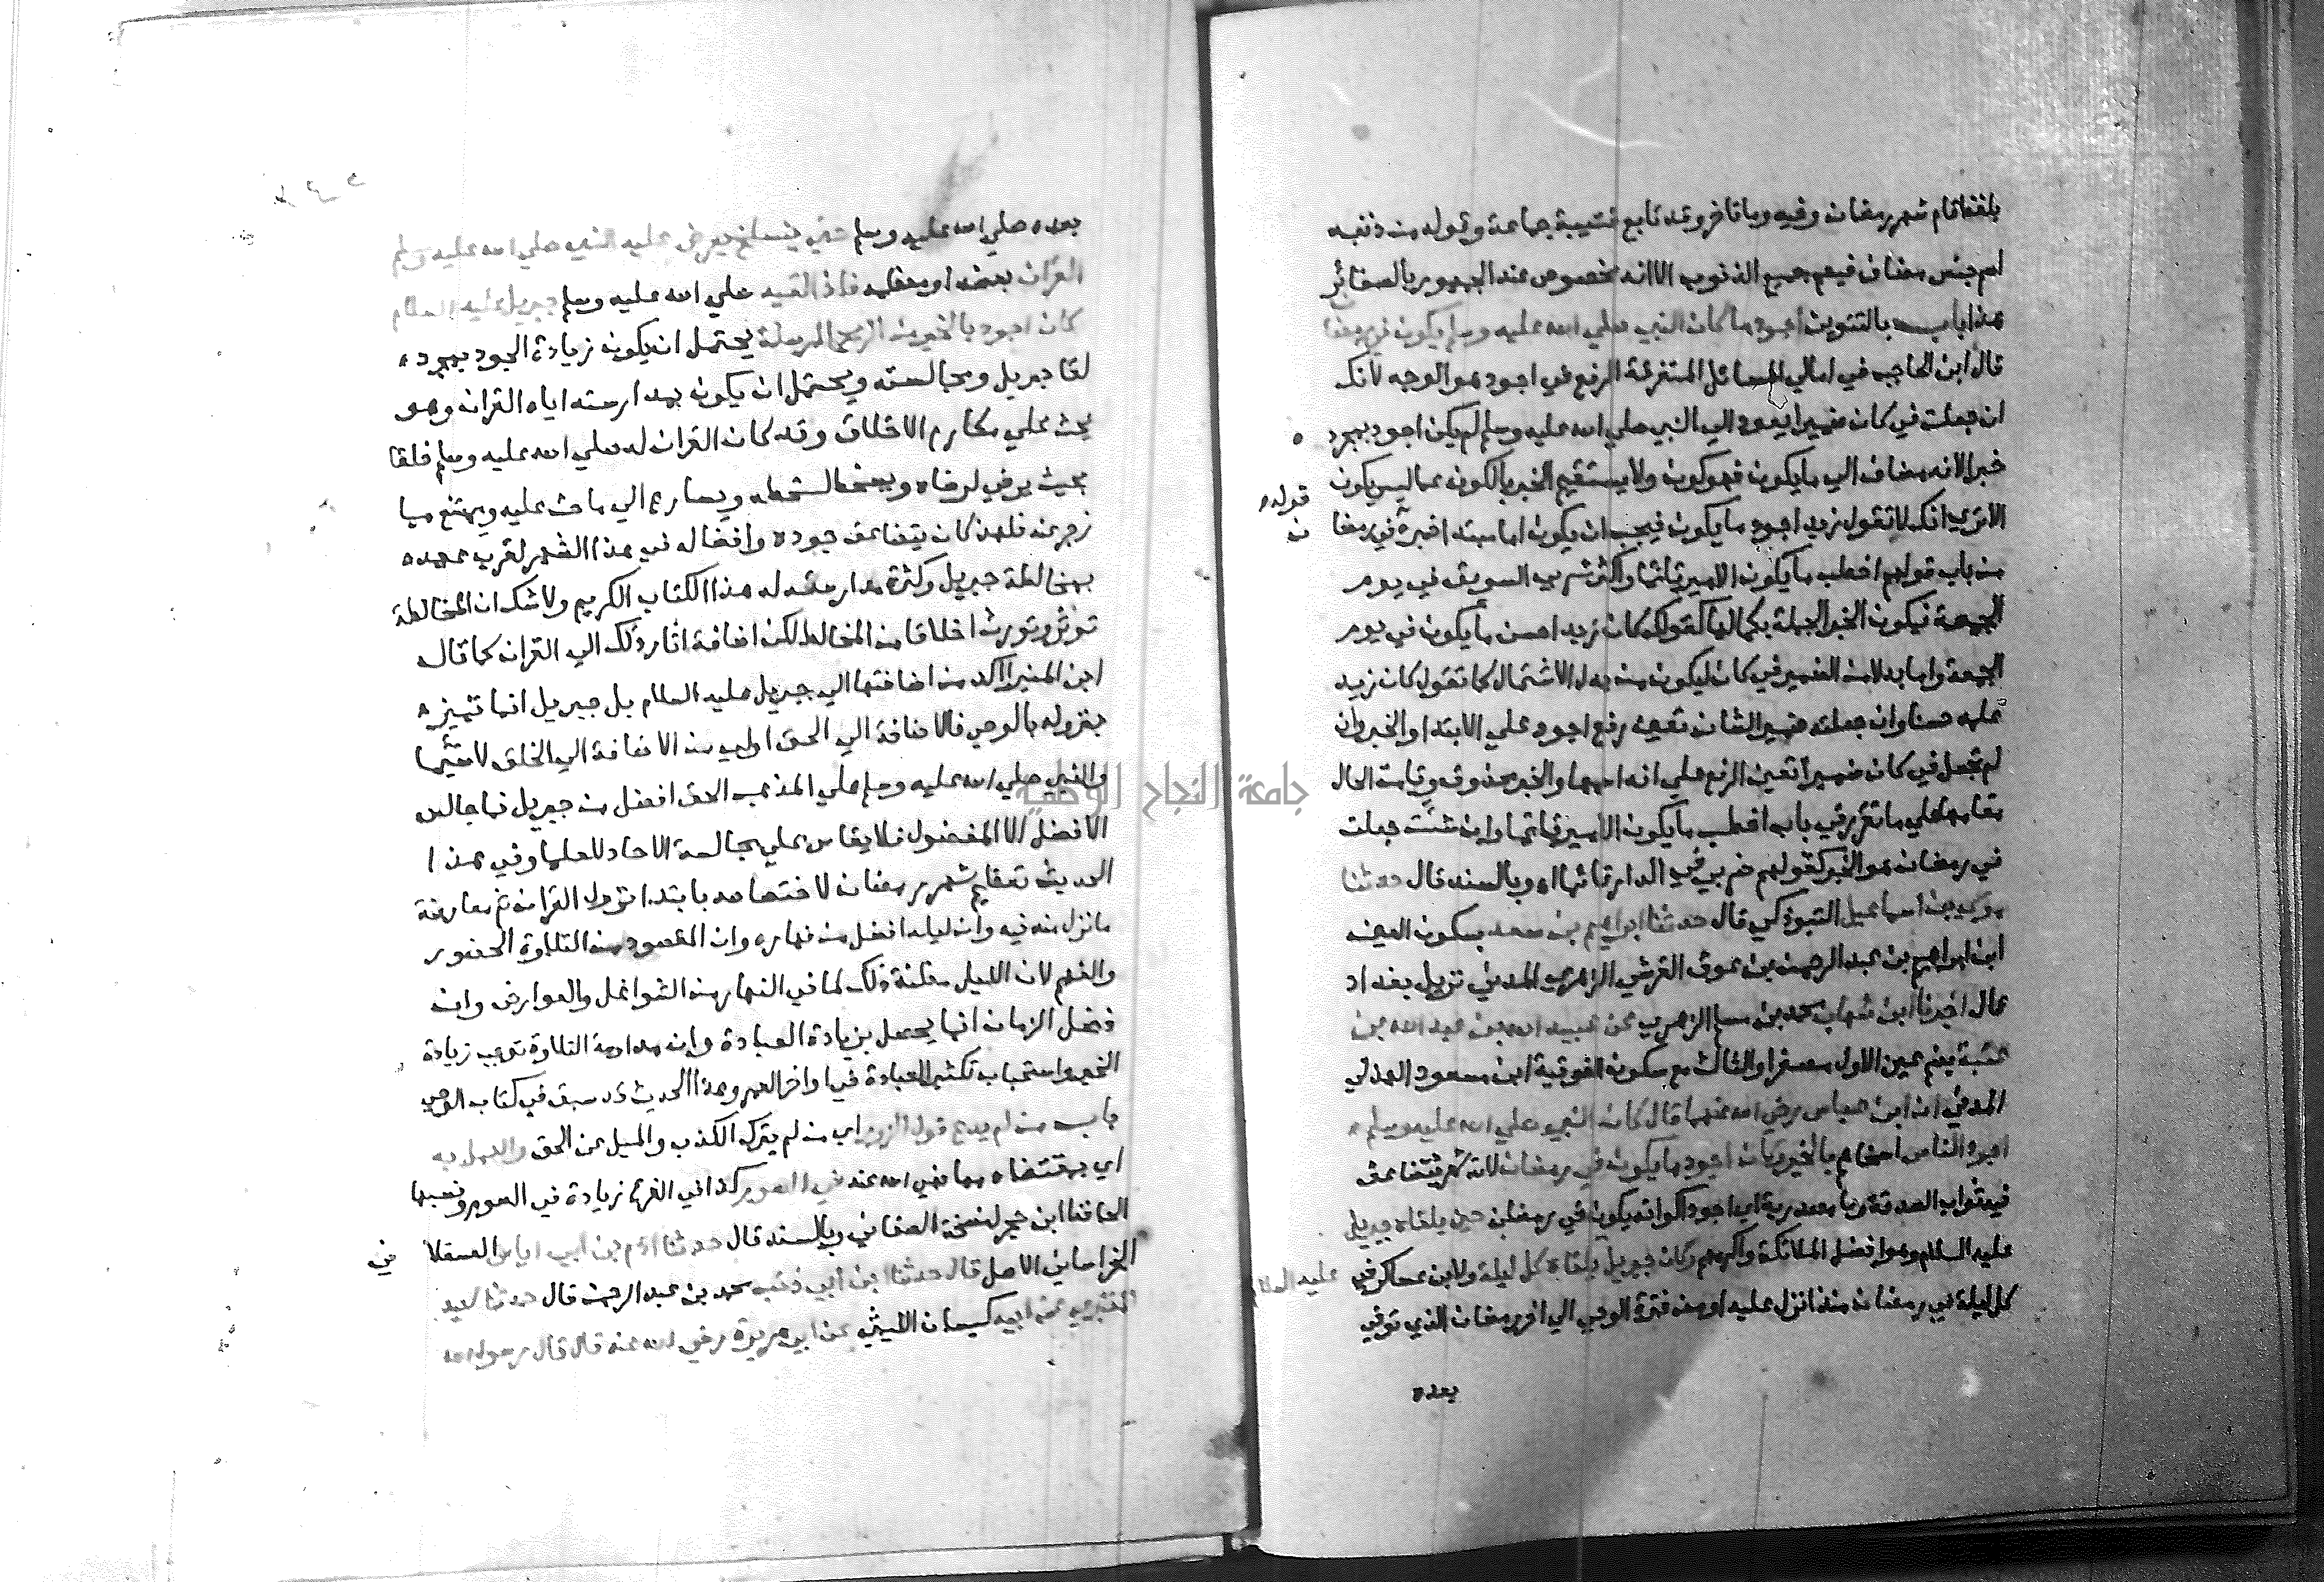 بلفظ قام شهر رمضان وفيه وما تاخر وقد تابع قتيبة جماعة وقوله من ذنبه
اسم جنس مضاف فيعم جميع الذنوب الا انه مخصوص عند الجمهور بالصغائر
هذا باب بالتنوين اجود ما كان النبي صلي الله عليه وسلم يكون في رمضا
ن
قال ابن الحاجب في امالي المسائل المتفرقة الرفع في اجود هو الوجه لانك
ان جعلت في كان ضميرا يعود الي النبي صلي الله عليه وسلم لم يكن اجود بمجرده
خبرا لانه مضاف الي ما يكون فهو كون ولا يستقيم الخبر بالكون عما ليس بكون
الا تري انك لا تقول زيد اجود ما يكون فيجب ان يكون اما مبتدا خبره في رمضا
قوله
ن
من باب قولهم اخطب ما يكون الامير قائما واكثر شربي السويق في يوم
الجمعة فيكون الخبر الجملة بكمالها كقولك كان زيد احسن ما يكون في يوم
الجمعة واما بدلا من الضمير في كان فيكون من بدل الاشتمال كما تقول كان زيد
علمه حسنا وان جعلته ضمير الشان تعين رفع اجود علي الابتدا والخبر وان
لم تجعل في كان ضميرا تعين الرفع علي انه اسمها والخبر محذوف وقامت الحال
مقامه علي ما تقرر في باب اخطب ما يكون الامير قائما وان شئت جعلت
في رمضان هو الخبر كقولهم ضربي في الدار قائما اه وبالسند قال حدثنا
موسي بن اسماعيل التبوذكي قال حدثنا ابراهيم بن سعد بسكون العين
ابن ابراهيم بن عبد الرحمن بن عوف القرشي الزهري المدني نزيل بغداد
قال اخبرنا ابن شهاب محمد بن مسلم الزهري عن عبيد الله بن عبد الله بن
عتبة بضم عين الاول مصغرا والثالث مع سكون الفوقية ابن مسعود الهذلي
المدني ان ابن عباس رضي الله عنهما قال كان النبي صلي الله عليه وسلم
اجود الناس اسخاهم بالخير وكان اجود ما يكون في رمضان لانه شهر يتضاعف
فيه ثواب الصدقة وما مصدرية اي اجود اكوانه يكون في رمضان حين يلقاه جبريل
عليه السلام وهو افضل الملائكة واكرمهم وكان جبريل يلقاه كل ليلة ولابن عساكر في
عليه السلام
كل ليلة في رمضان منذ انزل عليه او من فترة الوحي الي اخر رمضان الذي توفي
بعده
بعده صلي الله عليه وسلم حتي ينسلخ يعرض عليه النبي صلي الله عليه وسلم
القران بعضه او معظمه فاذا لقيه صلي الله عليه وسلم جبريل عليه السلام
كان اجود بالخير من الريح المرسلة يحتمل ان يكون زيادة الجود بمجرد
لقا جبريل ومجالسته ويحتمل ان يكون بمدارسته اياه القران وهو
يحث علي مكارم الاخلاق وقد كان القران له صلي الله عليه وسلم خلقا
بحيث يرضي لرضاه ويسخط لسخطه ويسارع الي ما حث عليه ويمتنع مما
زجر عنه فلهذا كان يتضاعف جوده وافضاله في هذا الشهر لقرب عهده
بمخالطة جبريل وكثرة مدارسته له هذا الكتاب الكريم ولا شك ان المخالطة
توثر وتورث اخلاقا من المخالط لكن اضافة اثار ذلك الي القران كما قال
ابن المنير اكد من اضافتها الي جبريل عليه السلام بل جبريل انما تميز
بنزوله بالوحي فالاضافة الي الحق اولي من الاضافة الي الخلق لا سيما
والنبي صلي الله عليه وسلم علي المذهب الحق افضل من جبريل فما جالس
الافضل الا المفضول فلا يقاس علي مجالسة الاحاد للعلما وفي هذا
الحديث تعظيم شهر رمضان لاختصاصه بابتدا نزول القران ثم معارضة
ما نزل منه فيه وان ليله افضل من نهاره وان المقصود من التلاوة الحضور
والفهم لان الليل مظنة ذلك لما في النهار من الشواغل والعوارض وان
فضل الزمان انما يحصل بزيادة العبادة وان مداومة التلاوة توجب زيادة
الخير واستحباب تكثير العبادة في اواخر العمر وهذا الحديث قد سبق في كتاب الوحي
باب من لم يدع قول الزور اي من لم يترك الكذب والميل عن الحق والعمل به
اي بمقتضاه مما نهي الله عنه في الصوم كذا في الفرع زيادة في الصوم ونسبها
الحافظ ابن حجر لنسخة الصغاني وبالسند قال حدثنا ادم بن ابي اياس العسقلا
ني
الخراساني الاصل قال حدثنا ابن ابي ذئب محمد بن عبد الرحمن قال حدثنا سعيد
المقبري عن ابيه كيسان الليثي عن ابي هريرة رضي الله عنه قال قال رسول الله
جامعة النجاح الوطنية